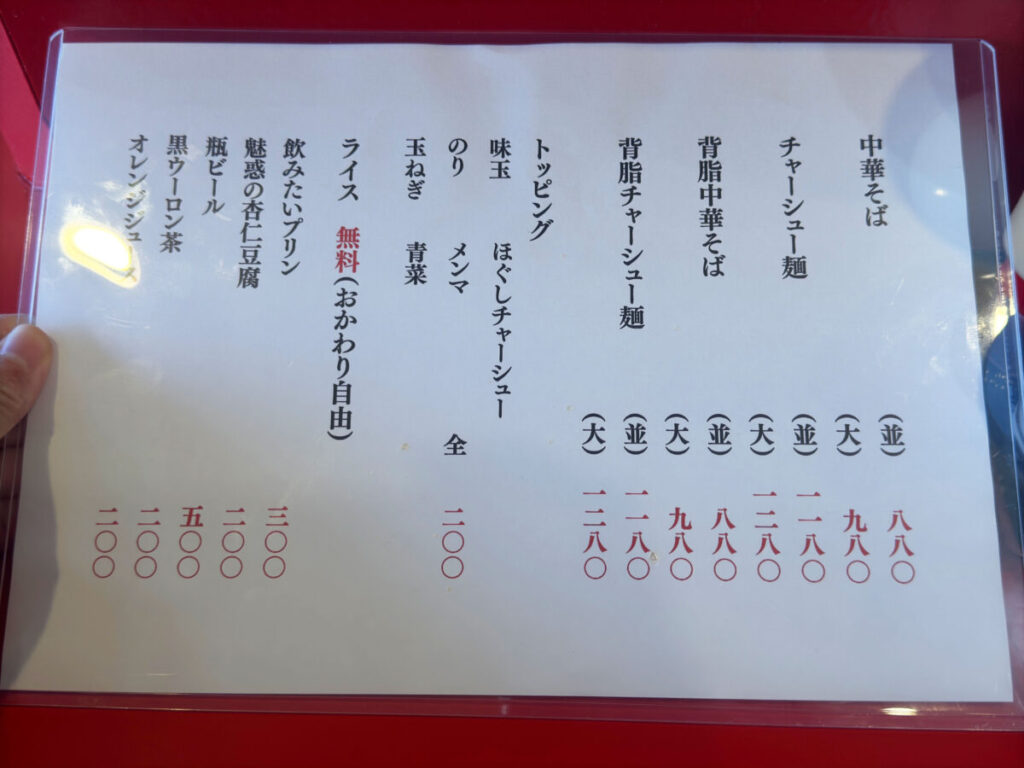 中華そば (並) 八八〇
(大) 九八〇
チャーシュー麺 (並) 一一八〇
(大) 一二八〇
背脂中華そば (並) 八八〇
(大) 九八〇
背脂チャーシュー麺 (並) 一一八〇
(大) 一二八〇
トッピング
味玉 ほぐしチャーシュー
のり メンマ 全 二〇〇
玉ねぎ 青菜
ライス 無料(おかわり自由)
飲みたいプリン 三〇〇
魅惑の杏仁豆腐 二〇〇
瓶ビール 五〇〇
黒ウーロン茶 二〇〇
オレンジジュース 二〇〇